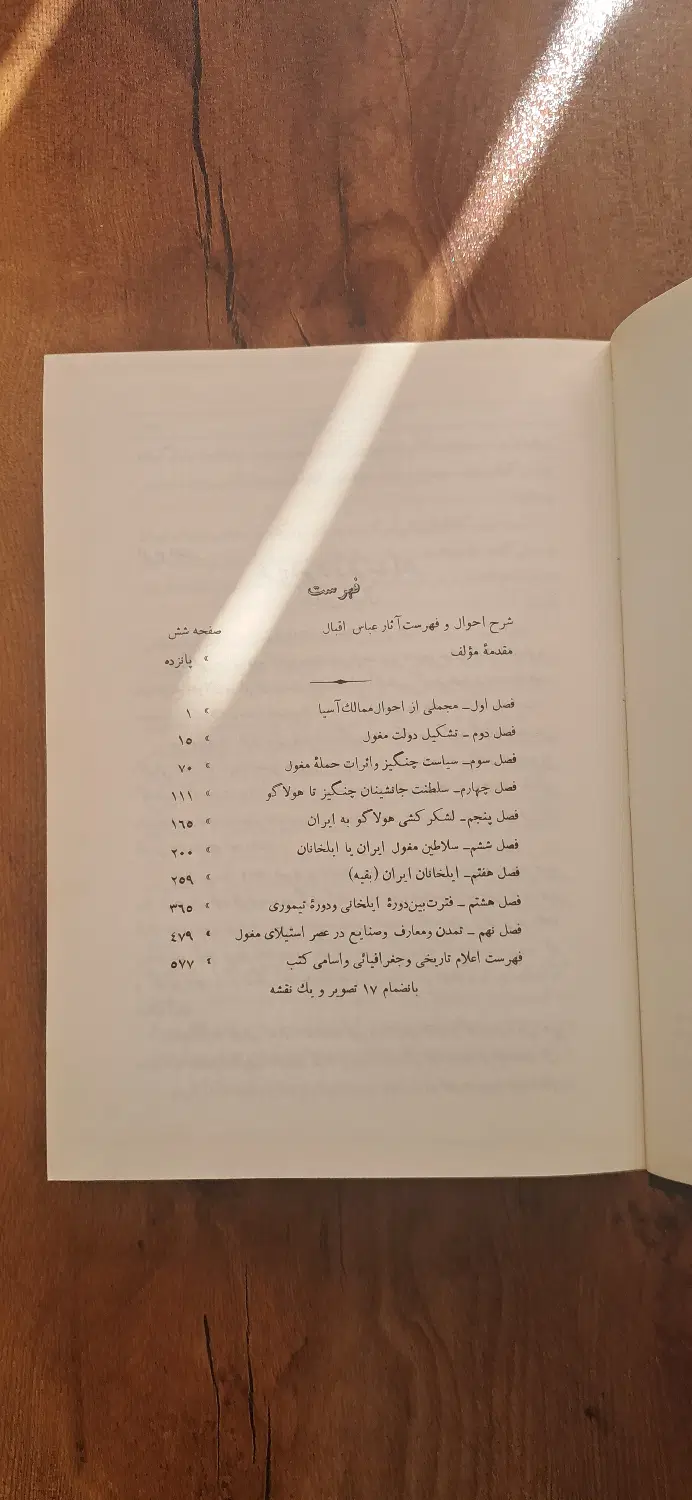 فهرست
شرح احوال و فهرست آثار عباس اقبال صفحه شش
مقدمهٔ مؤلف » پانزده
فصل اول ـ مجملی از احوال ممالك آسیا » ۱
فصل دوم ـ تشکیل دولت مغول » ۱٥
فصل سوم ـ سیاست چنگیز واثرات حملهٔ مغول » ۷۰
فصل چهارم ـ سلطنت جانشینان چنگیز تا هولاگو » ۱۱۱
فصل پنجم ـ لشکر کشی هولاگو به ایران » ۱٦٥
فصل ششم ـ سلاطین مغول ایران یا ایلخانان » ۲۰۰
فصل هفتم ـ ایلخانان ایران (بقیه) » ۲٥۹
فصل هشتم ـ فترت بین دورهٔ ایلخانی ودورهٔ تیموری » ۳٦٥
فصل نهم ـ تمدن ومعارف وصنایع در عصر استیلای مغول » ٤۷۹
فهرست اعلام تاریخی وجغرافیائی واسامی کتب » ٥۷۷
بانضمام ۱۷ تصویر و یك نقشه